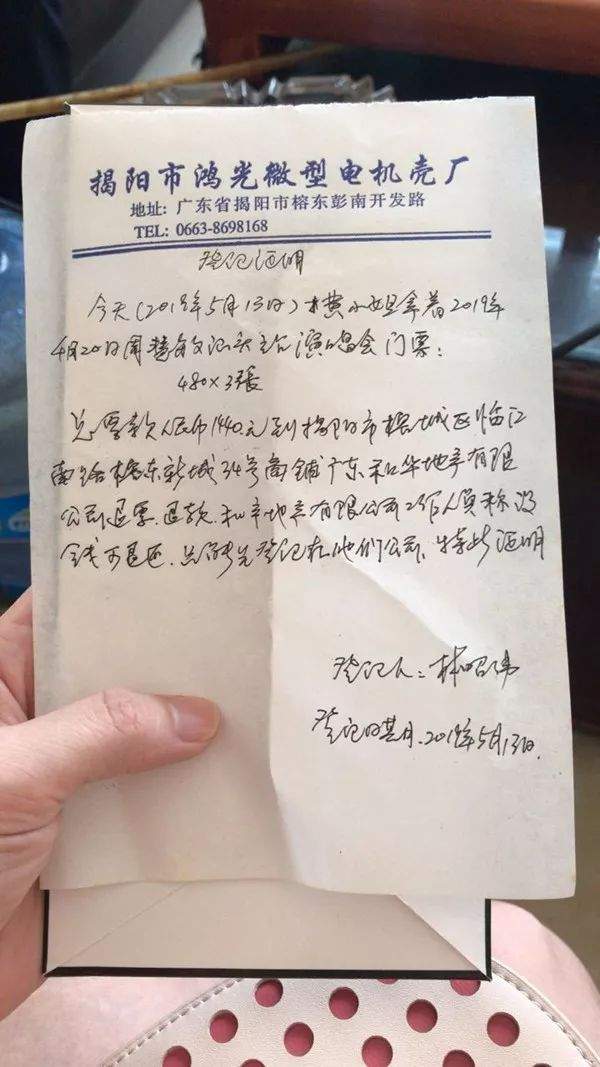 揭阳市鸿光微型电机壳厂
地址: 广东省揭阳市榕东彭南开发路
TEL: 0663-8698168
登记证明
今天(2019年5月13日) 小姐拿着2019年
4月20日周 演唱会门票:
480×3張
总票款人民币1440元到揭阳市榕城区临江
南 榕东新城34号商铺广东和华地产有限
公司退票退款.和华地产有限公司工作人员称没
钱可退还. 先登记在他们公司、特此证明
登记人: 林
登记日期.2019年5月13日.